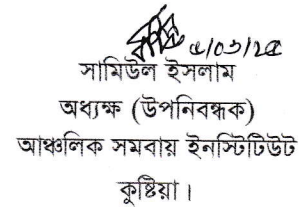 সামিউল ইসলাম
অধ্যক্ষ (উপনিবন্ধক)
আঞ্চলিক সমবায় ইনস্টিটিউট
কুষ্টিয়া।